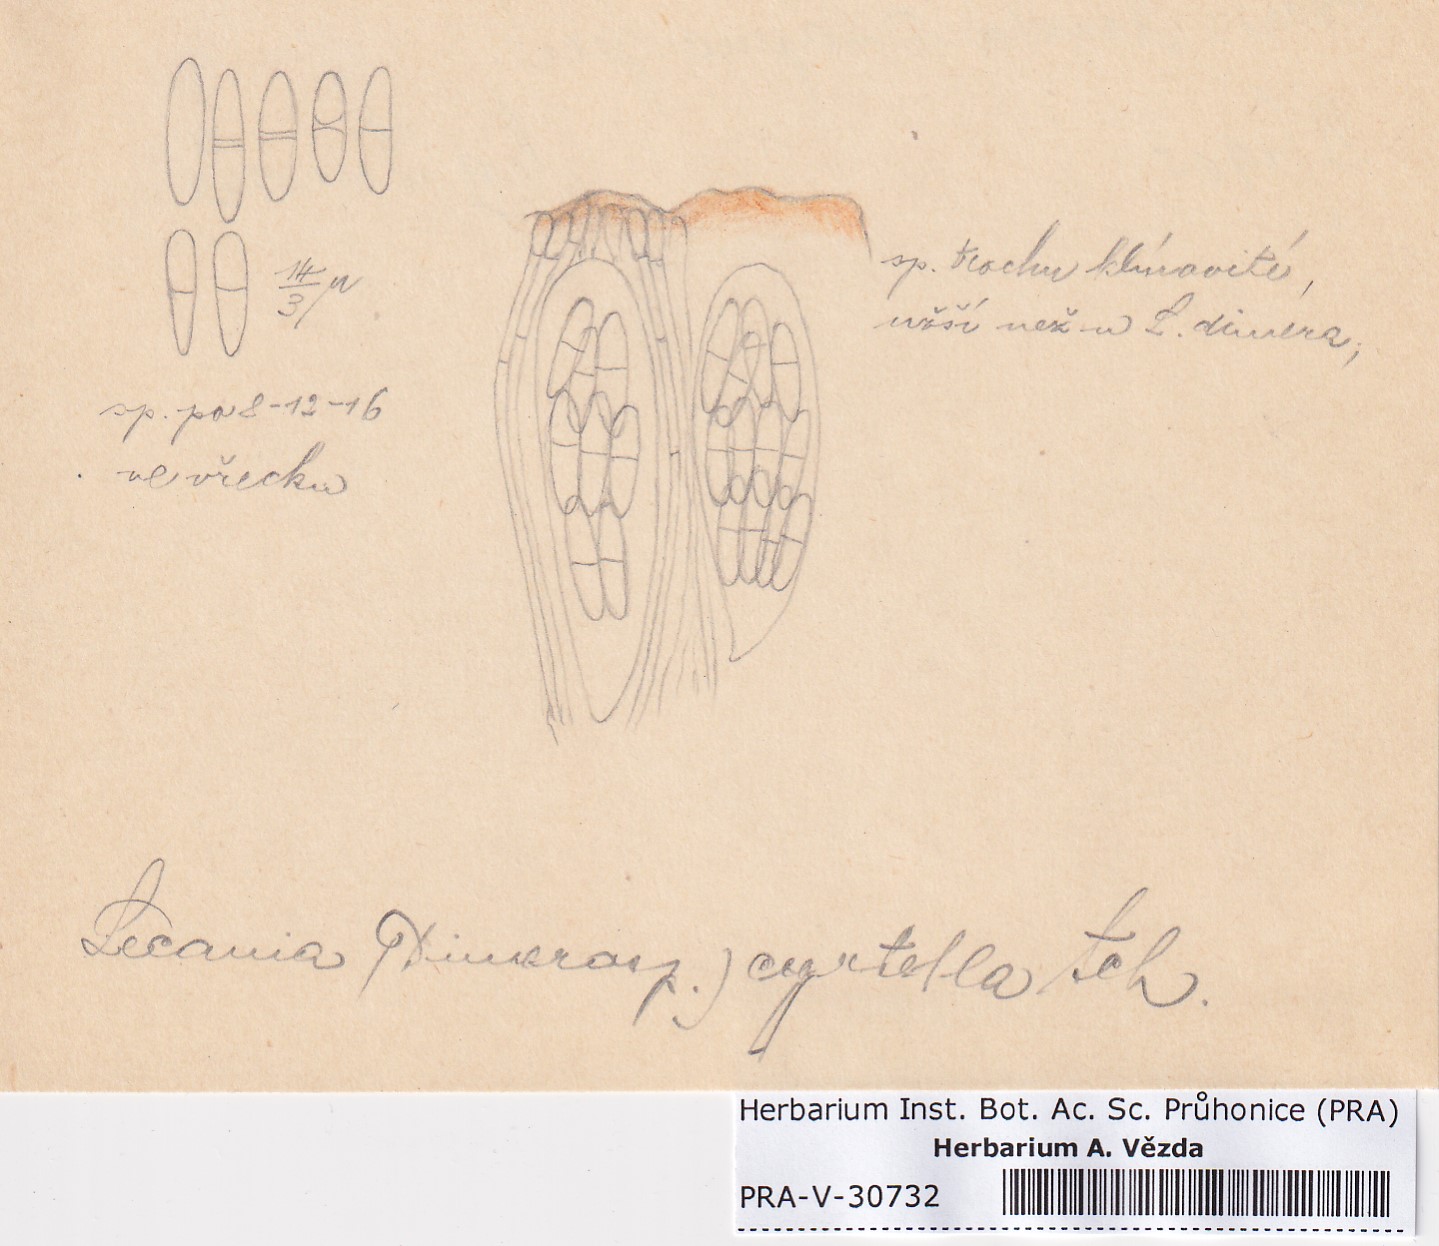 14/3 μ
sp. po 8-12-16
ve vřecku
sp. trochu klínovité,
užší než u L. dimera,
Lecania (Dimerosp.) cyrtella Fch.
Herbarium Inst. Bot. Ac. Sc. Průhonice (PRA)
Herbarium A. Vězda
PRA-V-30732